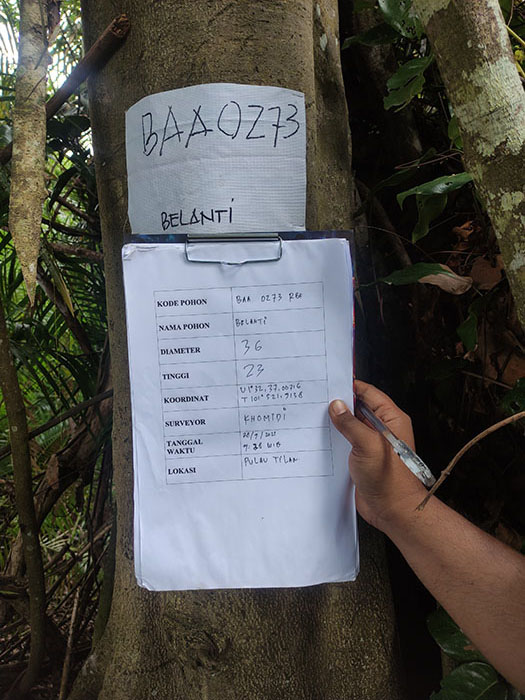 BAA0273
BELANTI
KODE POHON BAA 0273 RBE
NAMA POHON BELANTI
DIAMETER 36
TINGGI 23
KOORDINAT U1°32,37,00716
T 101°
SURVEYOR KHOMIDI
TANGGAL
WAKTU 7:36 WIB
LOKASI PULAU TILAN